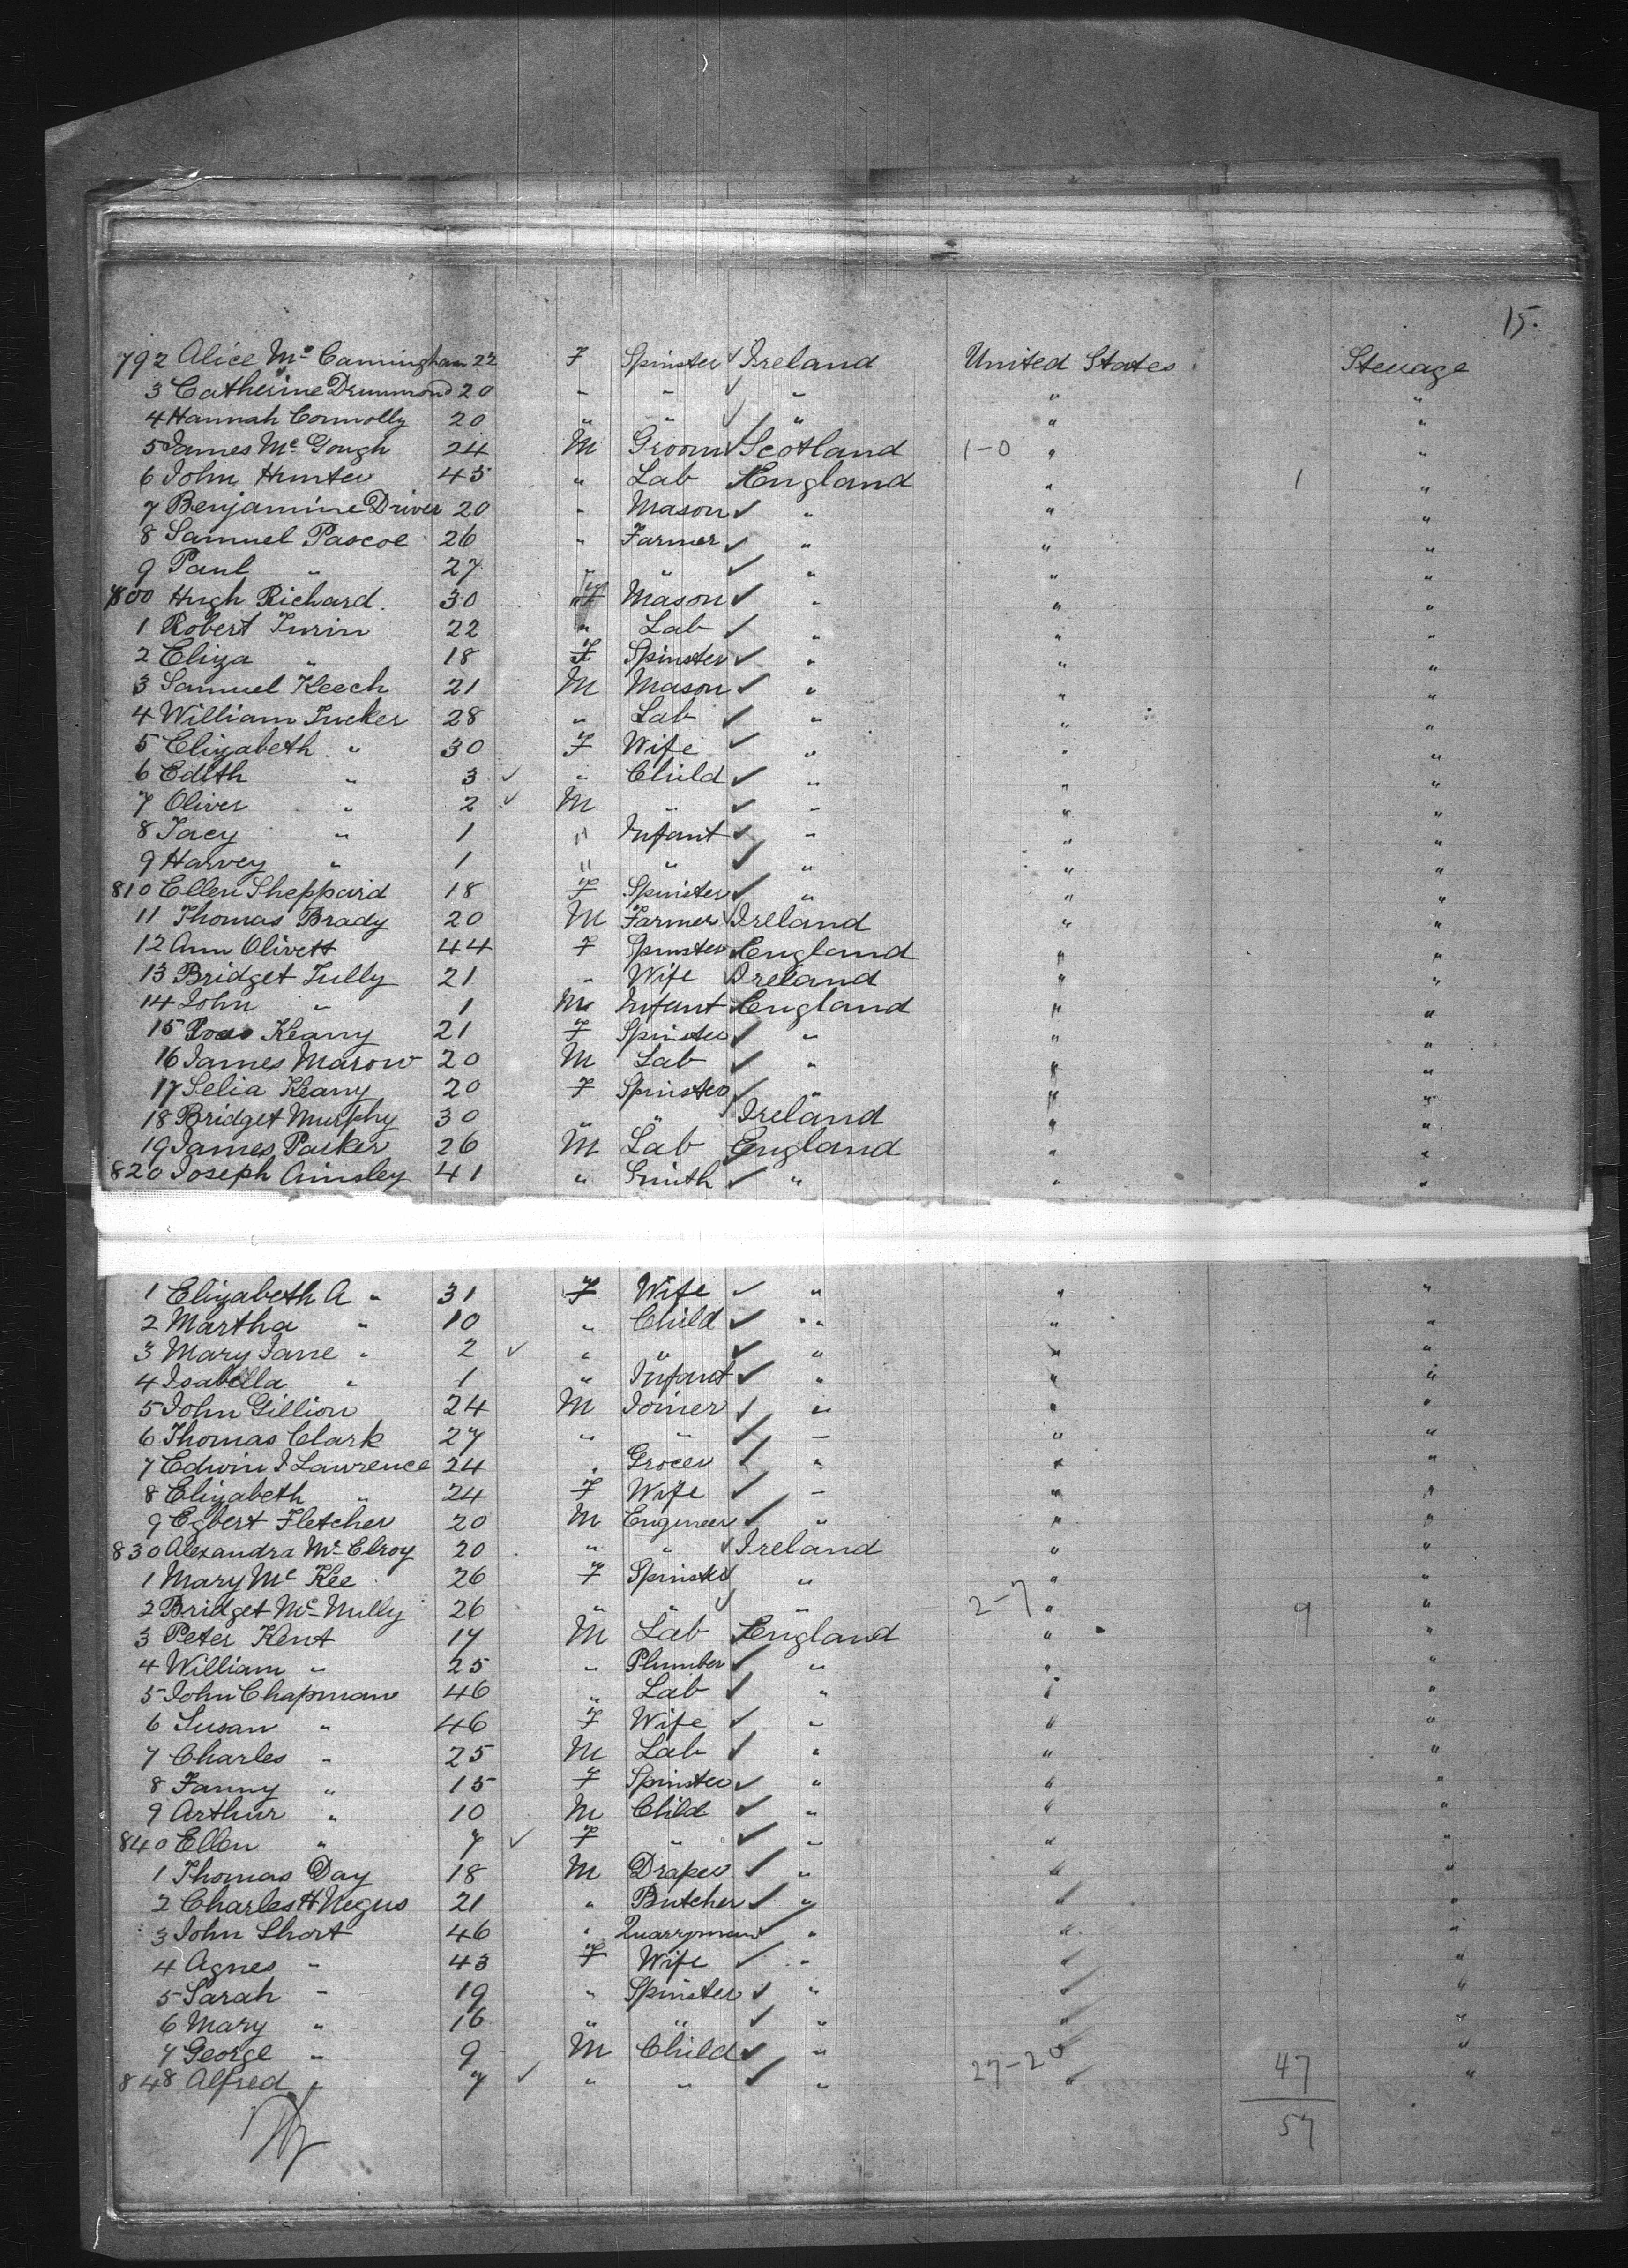 15.
792 Alice Mc Camingham 22 F Spinster ✓ Ireland United States Steerage
3 Catherine Drummond 20 " " ✓ " " "
4 Hannah Connolly 20 " " ✓ " " "
5 James Mc Gough 24 M Groom ✓ Scotland 1-0 " "
6 John Hunter 45 " Lab ✓ England " 1 "
7 Benjamine Driver 20 " Mason ✓ " " "
8 Samuel Pascoe 26 " Farmer ✓ " " "
9 Paul " 27 " " ✓ " " "
800 Hugh Richard. 30 Mason ✓ " " "
1 Robert Turin 22 " Lab ✓ " " "
2 Eliza " 18 F Spinster ✓ " " "
3 Samuel Keech 21 M Mason ✓ " " "
4 William Tucker 28 " Lab ✓ " " "
5 Elizabeth " 30 F Wife ✓ " " "
6 Edith " 3 ✓ " Child ✓ " " "
7 Oliver " 2 ✓ M " ✓ " " "
8 Tacy " 1 " Infant ✓ " " "
9 Harvey " 1 " " ✓ " " "
810 Ellen Sheppard 18 F Spinster ✓ " " "
11 Thomas Brady 20 M Farmer ✓ Ireland " "
12 Ann Olivett 44 F Spinster ✓ England " "
13 Bridget Tully 21 " Wife ✓ Ireland " "
14 John " 1 M Infant ✓ England " "
15 Keany 21 F Spinster ✓ " " "
16 James Marow 20 M Lab ✓ " " "
17 Selia Keany 20 F Spinster ✓ " " "
18 Bridget Murphy 30 " " ✓ Ireland " "
19 James Parker 26 M Lab England " "
820 Joseph Ainsley 41 " Smith ✓ " " "
1 Elizabeth A " 31 F Wife ✓ " " "
2 Martha " 10 " Child ✓ " " "
3 Mary Jane " 2 ✓ " " ✓ " " "
4 Isabella " 1 " Infant ✓ " " "
5 John Gillion 24 M Joiner ✓ " " "
6 Thomas Clark 27 " " ✓ " " "
7 Edwin J Lawrence 24 " Grocer ✓ " " "
8 Elizabeth " 24 F Wife ✓ " " "
9 Egbert Fletcher 20 M Engineer ✓ " " "
830 Alexandra Mc Elroy 20 " " ✓ Ireland " "
1 Mary Mc Kee 26 F Spinster ✓ " " "
2 Bridget Mc Nully 26 " " ✓ " 2-7 " 9 "
3 Peter Kent 17 M Lab ✓ England " "
4 William " 25 " Plumber ✓ " " "
5 John Chapman 46 " Lab ✓ " " "
6 Susan " 46 F Wife ✓ " " "
7 Charles " 25 M Lab ✓ " " "
8 Fanny " 15 F Spinster ✓ " " "
9 Arthur " 10 M Child ✓ " " "
840 Ellen " 7 ✓ F " ✓ " " "
1 Thomas Day 18 M Draper ✓ " " "
2 Charles H Negus 21 " Butcher ✓ " " "
3 John Short 46 " Quarryman ✓ " " "
4 Agnes " 43 F Wife ✓ " " "
5 Sarah " 19 " Spinster ✓ " " "
6 Mary " 16 " " ✓ " " "
7 George " 9 M Child ✓ " " "
848 Alfred " 7 ✓ " " ✓ " 27-20 " 47 "
57